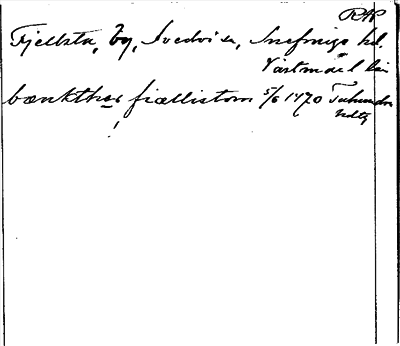 RAP
Fjellsta, by, Svedvi sn, Snefringe hd.
Västmanl. län
bænkther fiællistom 5/6 1470 Tuhundra
hdtg